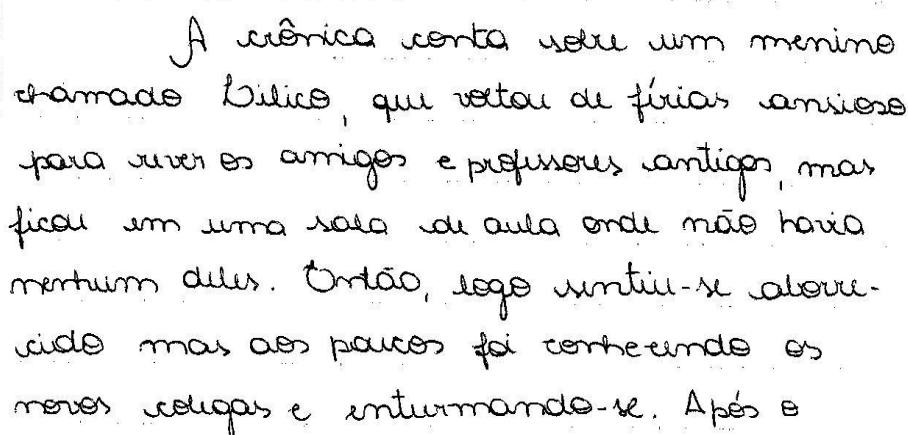 A crônica conta sobre um menino
chamado Bilico, que voltou de férias ansioso
para rever os amigos e professores antigos, mas
ficou em uma sala de aula onde não havia
nenhum deles. Então, logo sentiu-se aborre-
cido mas aos poucos foi conhecendo os
novos colegas e enturmando-se. Após o